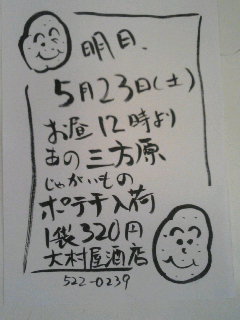 明日、
5月23日(土)
お昼12時より
あの三方原
じゃがいもの
ポテチ入荷
1袋320円
大村屋酒店
522-0239